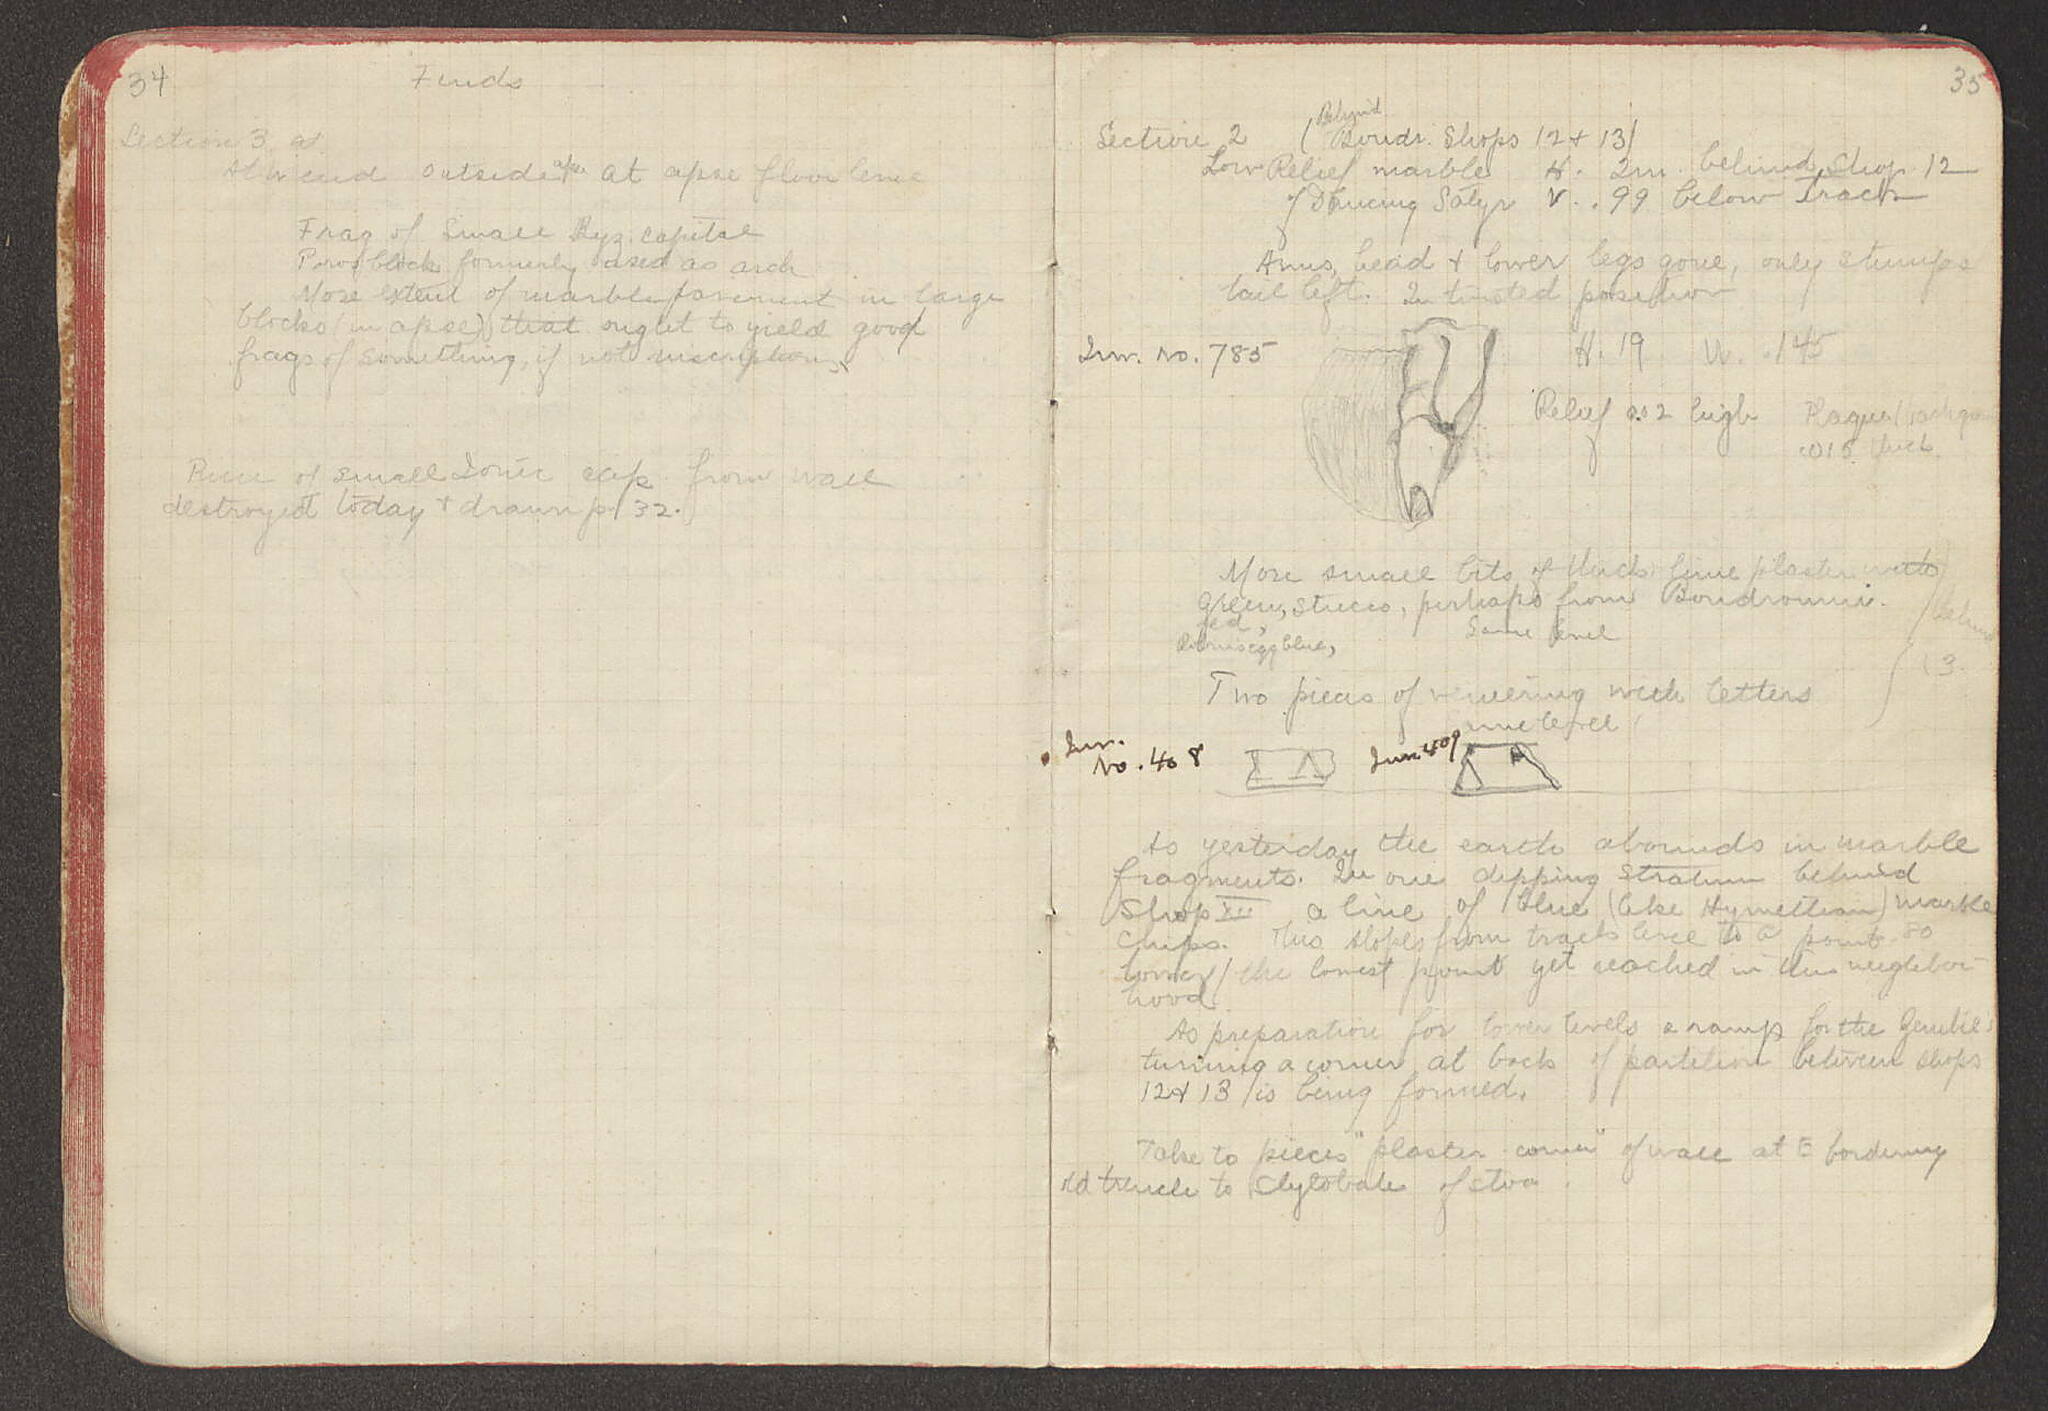 34
Finds
Section 3 at
At W end outside apse at apse floor level
Frag of small Byz. capital
Poros block formerly used as arch
More extent of marble pavement in large
blocks (in apse) that ought to yield good
frags of something, if not inscriptions.
Piece of small Ionic cap from wall
destroyed today & drawn p. 32.
35
Section 2 (Behind Boudr. Shops 12 & 13)
Low Relief marble H. 2m. behind Shop 12
of Dancing Satyr V. .99 below Track
Arms, head & lower legs gone, only stumps
tail left. In twisted position
Inv. No. 785 H. 19 W. .145
Relief .02 high Plaque (background
.015 thick
More small bits of thick lime plaster with
green, stucco, perhaps from Boudroumi.
red, Same level
Robin's egg blue,
behind
13.
Two pieces of veneering with letters
same level
Inv.
No. 408 Σ Λ Inv. 409 Λ
As yesterday the earth abounds in marble
fragments. In one dipping stratum behind
Shop XII a line of blue (like Hymettian) marble
chips. This slopes from track level to a point .80
lower / the lowest point yet reached in this neighbor-
hood
As preparation for lower levels a ramp for the
turning a corner at back of partition between shops
12 & 13 is being formed.
Take to pieces "plaster corner" of wall at E bordering
old trench to Stylobate of stoa.